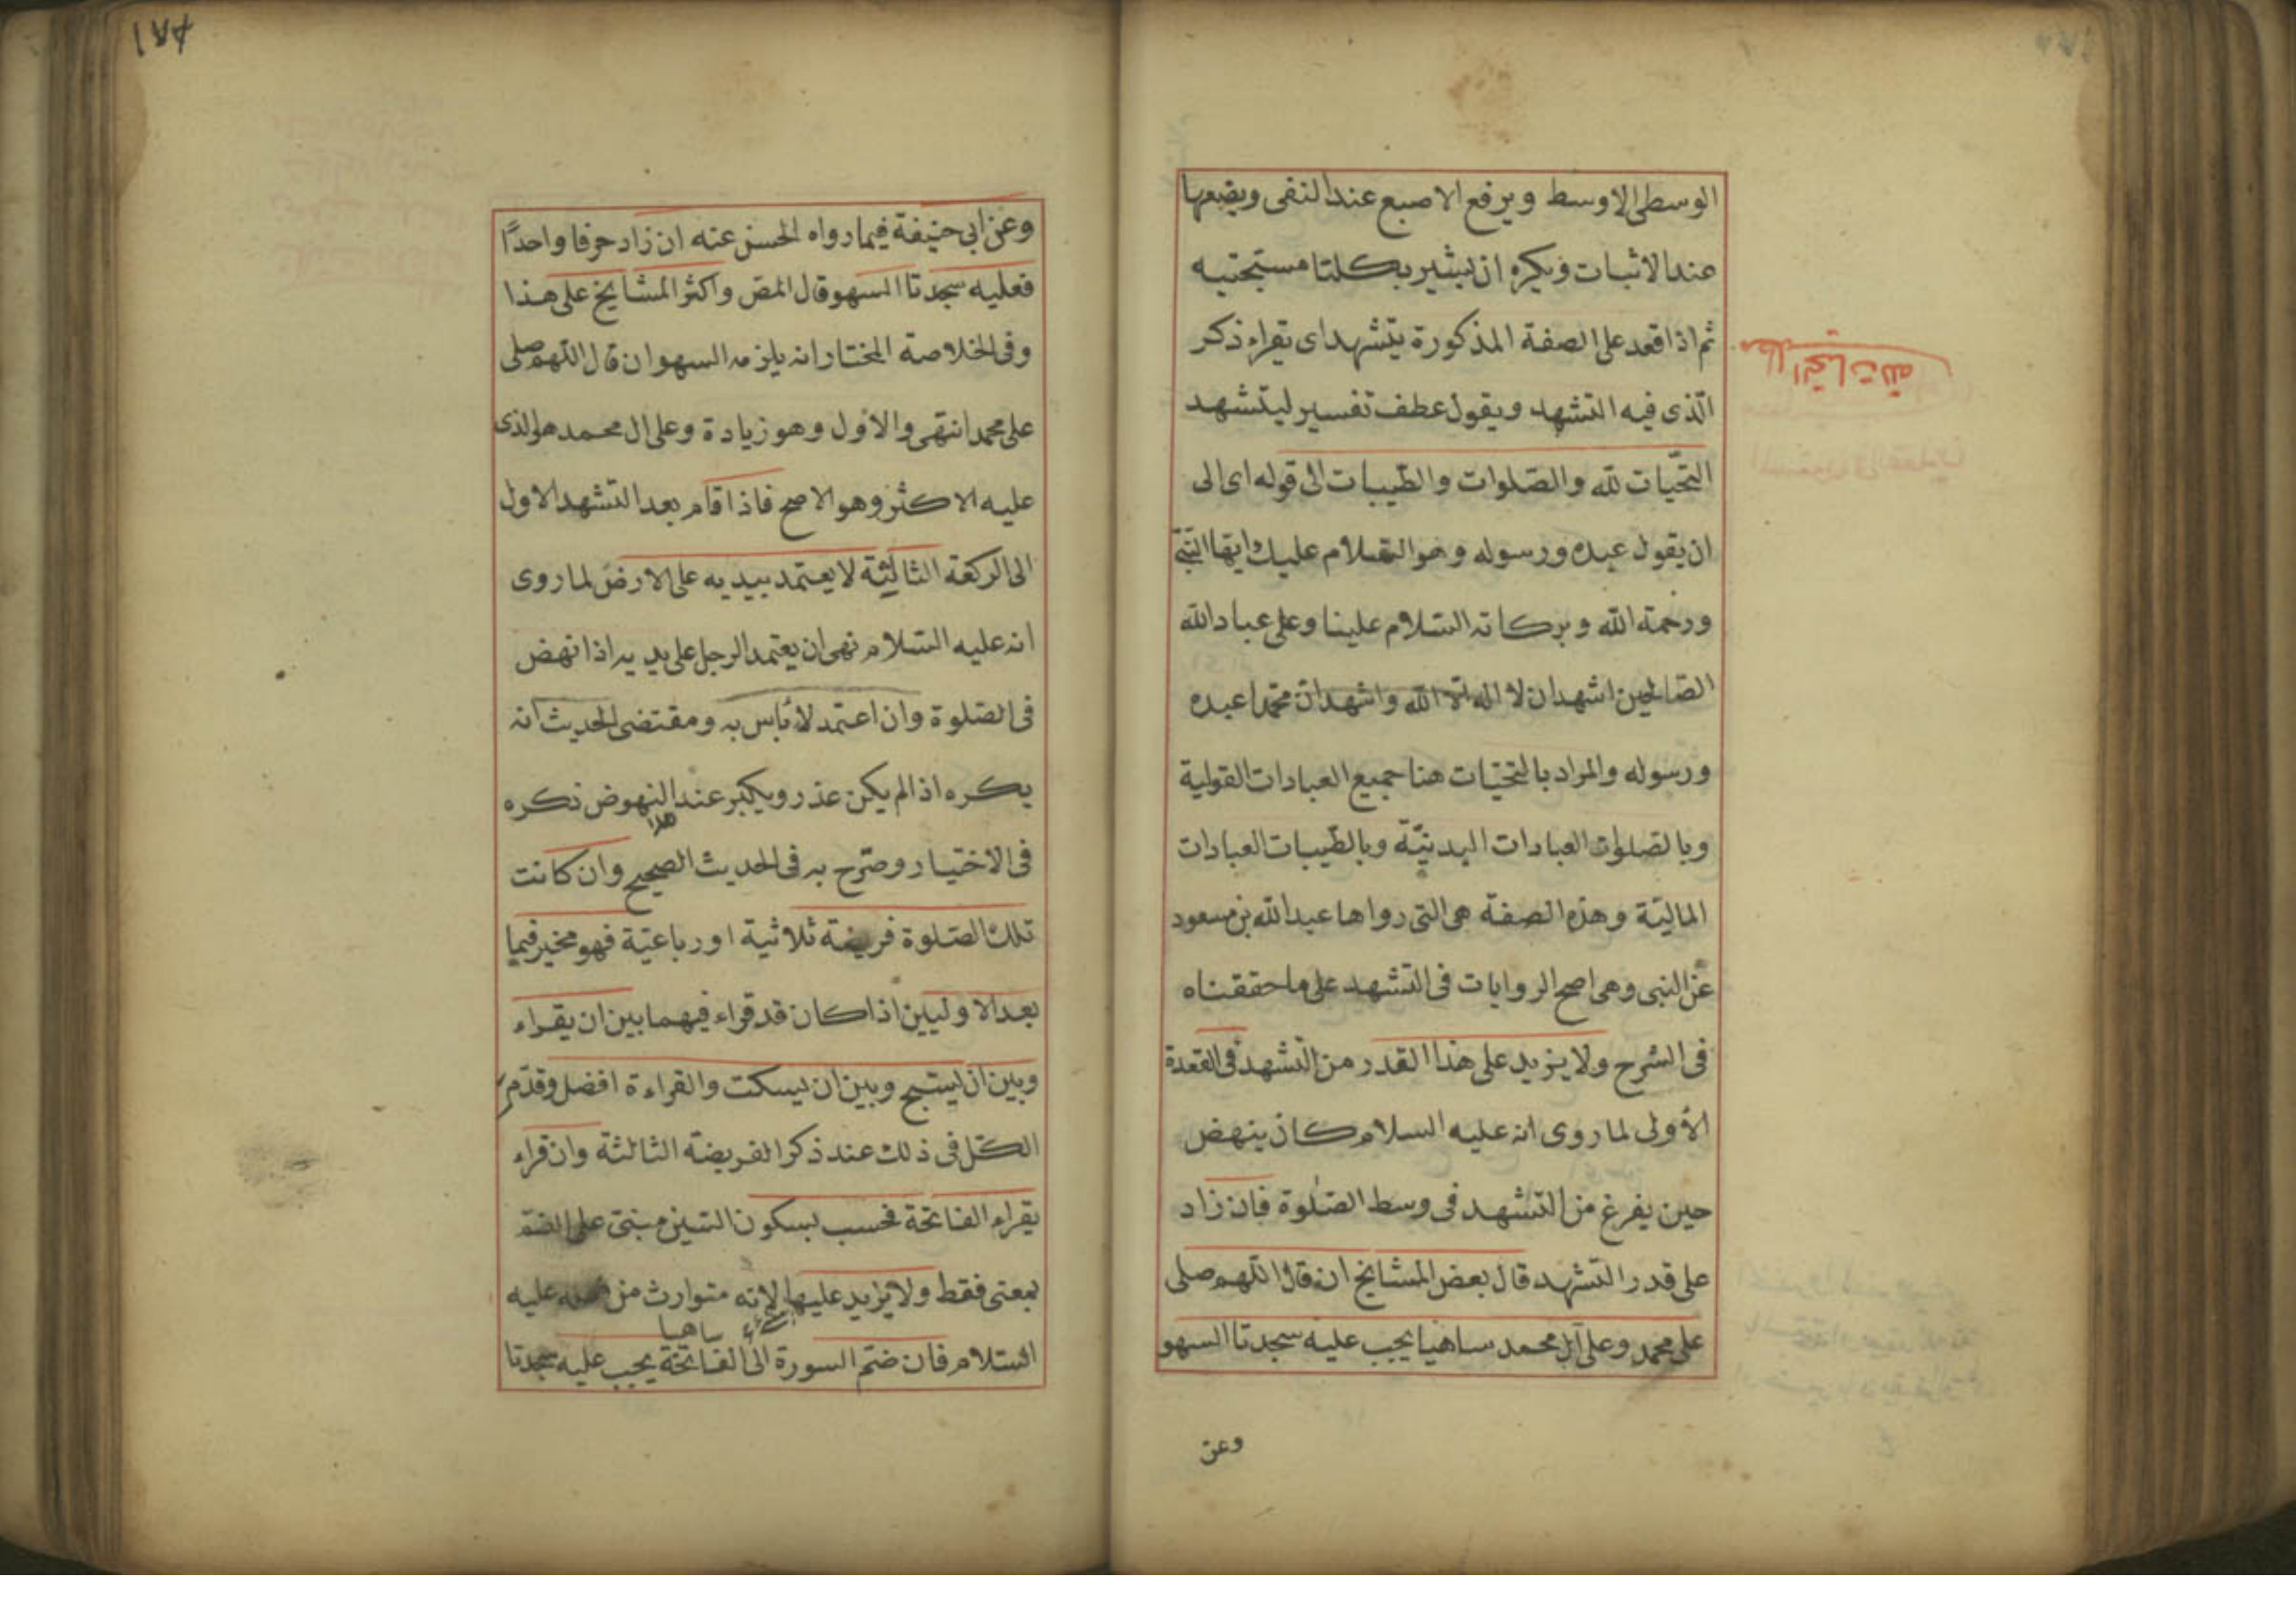 الوسطى الاوسط ويرفع الاصبع عند النفى ويضعها
عند الاثبات ويكره ان يشير بكلتا مسبحتيه
ثم اذا قعد على الصفة المذكورة يتشهد اى يقراء ذكر
الّذى فيه التشهد ويقول عطف تفسير ليتشهد
التحيّات للّه والصّلوات والطّيبات الى قوله اى الى
ان يقول عبده ورسوله وهو السّلام عليك ايّها النبىّ
ورحمة اللّه وبركاته السّلام علينا وعلى عباد اللّه
الصّالحين اشهد ان لا اله الّا اللّه واشهد انّ محمّدا عبده
ورسوله والمراد بالتحيّات هنا جميع العبادات القولية
وبالصّلوات العبادات البدنيّة وبالطّيبات العبادات
الماليّة وهذه الصفة هى التى رواها عبد اللّه بن مسعود
عن النبى وهى اصح الروايات فى التّشهد على ما حققناه
فى الشرح ولا يزيد على هذا القدر من التّشهد فى القعدة
الأولى لما روى انه عليه السلام كان ينهض
حين يفرغ من التّشهد فى وسط الصّلوة فان زاد
على قدر التّشهد قال بعض المشايخ ان قال اللّهم صلى
على محمد وعلى آل محمد ساهيا يجب عليه سجدتا السهو
وعن
التحيّات للّه
١٨٢
وعن ابى حنيفة فيما رواه الحسن عنه ان زاد حرفا واحدًا
فعليه سجدتا السهو قال المص واكثر المشايخ على هذا
وفى الخلاصة المختار انه يلزمه السهو ان قال اللّهم صلى
على محمد انتهى والاول وهو زيادة وعلى ال محمد هو الذى
عليه الاكثر وهو الاصح فاذا قام بعد التّشهد الاول
الى الركعة الثالثة لا يعتمد بيديه على الارض لما روى
انه عليه السّلام نهى ان يعتمد الرجل على يديه اذا نهض
فى الصّلوة وان اعتمد لا بأس به ومقتضى الحديث انه
يكره اذا لم يكن عذر ويكبر عند النهوض ذكره
هذا
فى الاختيار وصرّح به فى الحديث الصحيح وان كانت
تلك الصّلوة فريضة ثلاثية او رباعيّة فهو مخير فيما
بعد الاوليين اذا كان قد قراء فيهما بين ان يقراء
وبين ان يسبح وبين ان يسكت والقراءة افضل وقدّم
الكّل فى ذلك عند ذكر الفريضة الثالثة وان قراء
يقراء الفاتحة فحسب بسكون السّين مبنىّ على الضمّ
بمعنى فقط ولا يزيد عليها لانّه متوارث من عليه
ساهيا
السّلام فان ضمّ السورة الى الفاتحة يجب عليه سجدتا